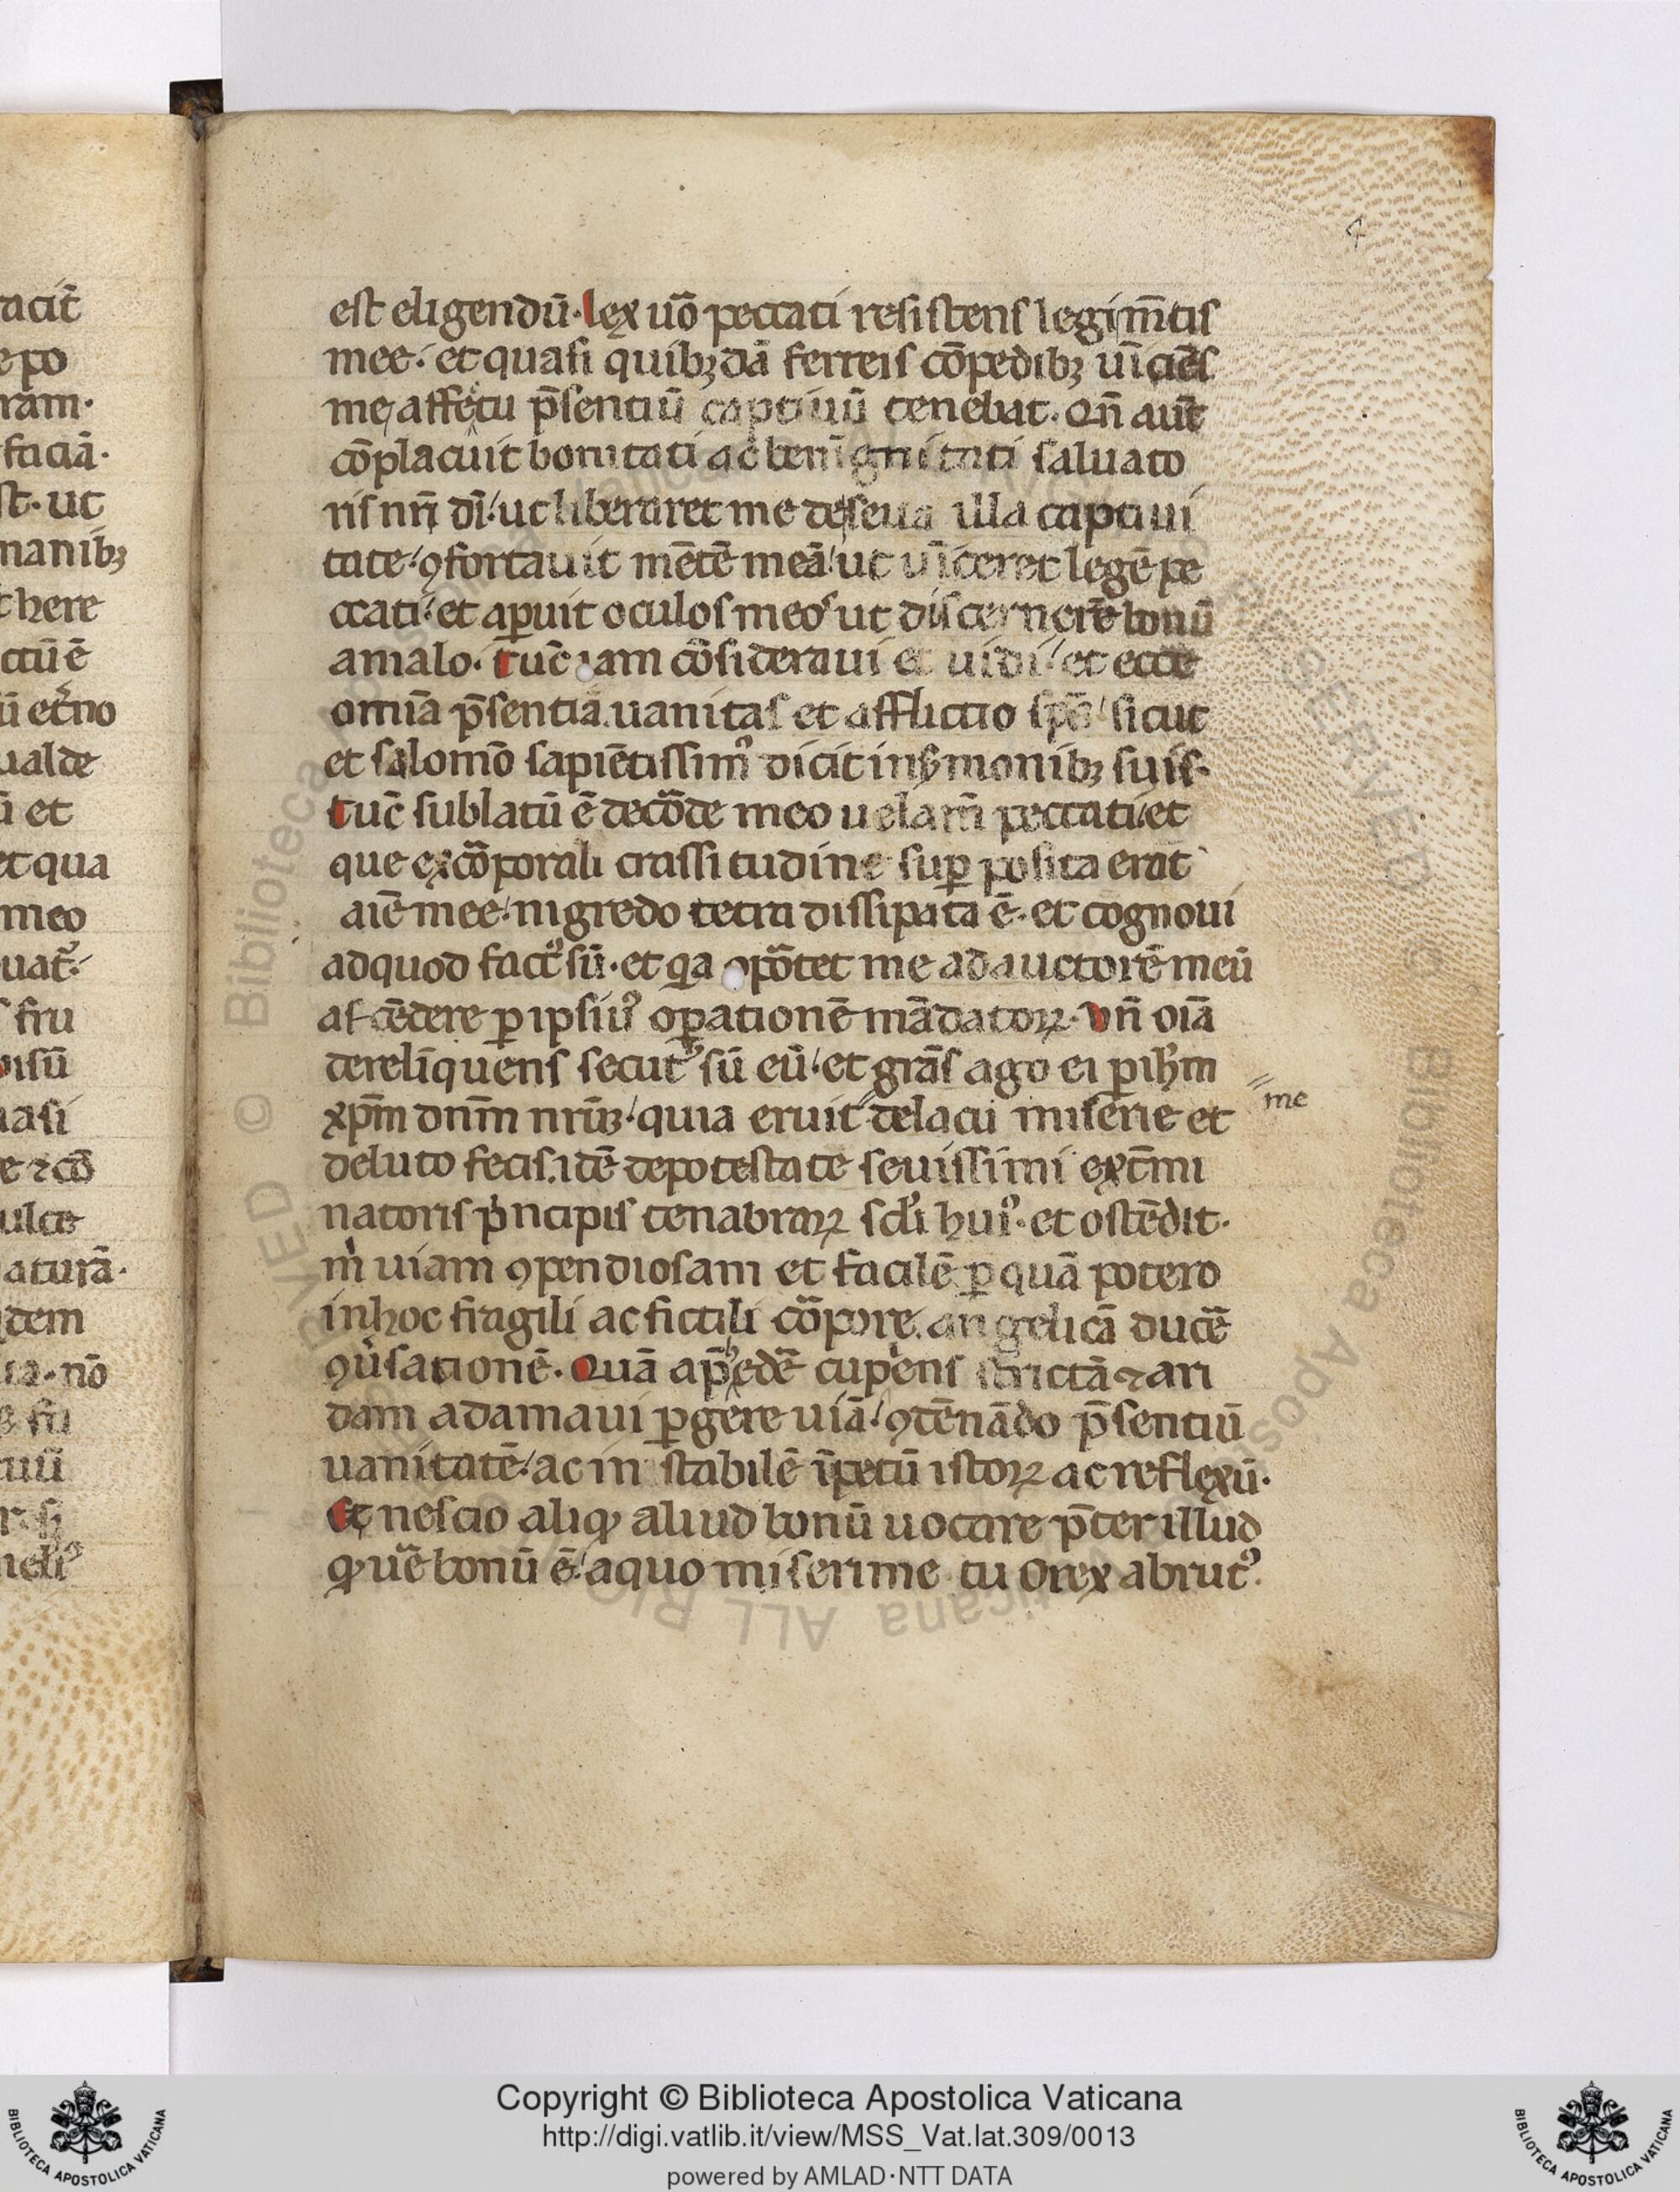 est eligendū. lex uō peccati resistens legi m̄tis
mee. et quasi quibꝫdā ferreis cōpedibꝫ uīciēs
me affectu p̄sentiū captiuū tenebat. Qn̄ aut̄
cōplacuit bonitati ac benignitati saluato
ris nr̄i dī. ut liberaret me de seua illa captiui
tate. ꝯfortauit mētē meā. ut uīceret legē pe
ccati. et aꝑuit oculos meos ut discernerē bonū
a malo. tūc iam cōsideraui et uidi. et ecce
omīa p̄sentia uanitas et afflictio spc̄ sicut
et salomō sapiētissimꝰ dicit in sermonibꝫ suis.
tūc sublatū ē de corde meo uelam̄ peccati. et
que ex corporali crassitudine suꝑ posita erat
aīe mee. nigredo tetra dissipata ē. et cognoui
ad quod factꝰ sū. et qa oportet me ad auctorē meū
ascēdere ꝑ ipsiuꝰ oꝑationē mādatoꝝ. Vn̄ oīa
derelīquens secutꝰ sū eū. et grās ago ei ꝑ ih̄m
xp̄m dn̄m nrūꝫ. quia eruit de lacu miserie et
me
de luto fecis. idē de potestate seuissimi ext̄mi
natoris pͥncipis tenabraꝝ sc̄li huiꝰ. et ostēdit.
mͥ uiam ꝯpendiosam et facilē ꝑ quā potero
in hoc fragili ac fictili corpore. angelicā ducē
ꝯu̾sationē. Quā ap̄hedē cupiens strictā ⁊ ari
dam adamaui ꝑgere uiā. ꝯtēnādo p̄sentiū
uanitatē. ac in stabilē īpetū istoꝝ ac reflexū.
Et nescio aliqꝫ aliud bonū uocare p̄ter illud
qꝫ uē bonū ē. a quo miserime tu o rex abrutꝰ.
4
Copyright © Biblioteca Apostolica Vaticana
http://digi.vatlib.it/view/MSS_Vat.lat.309/0013
powered by AMLAD·NTT DATA
BIBLIOTECA APOSTOLICA VATICANA
BIBLIOTECA APOSTOLICA VATICANA